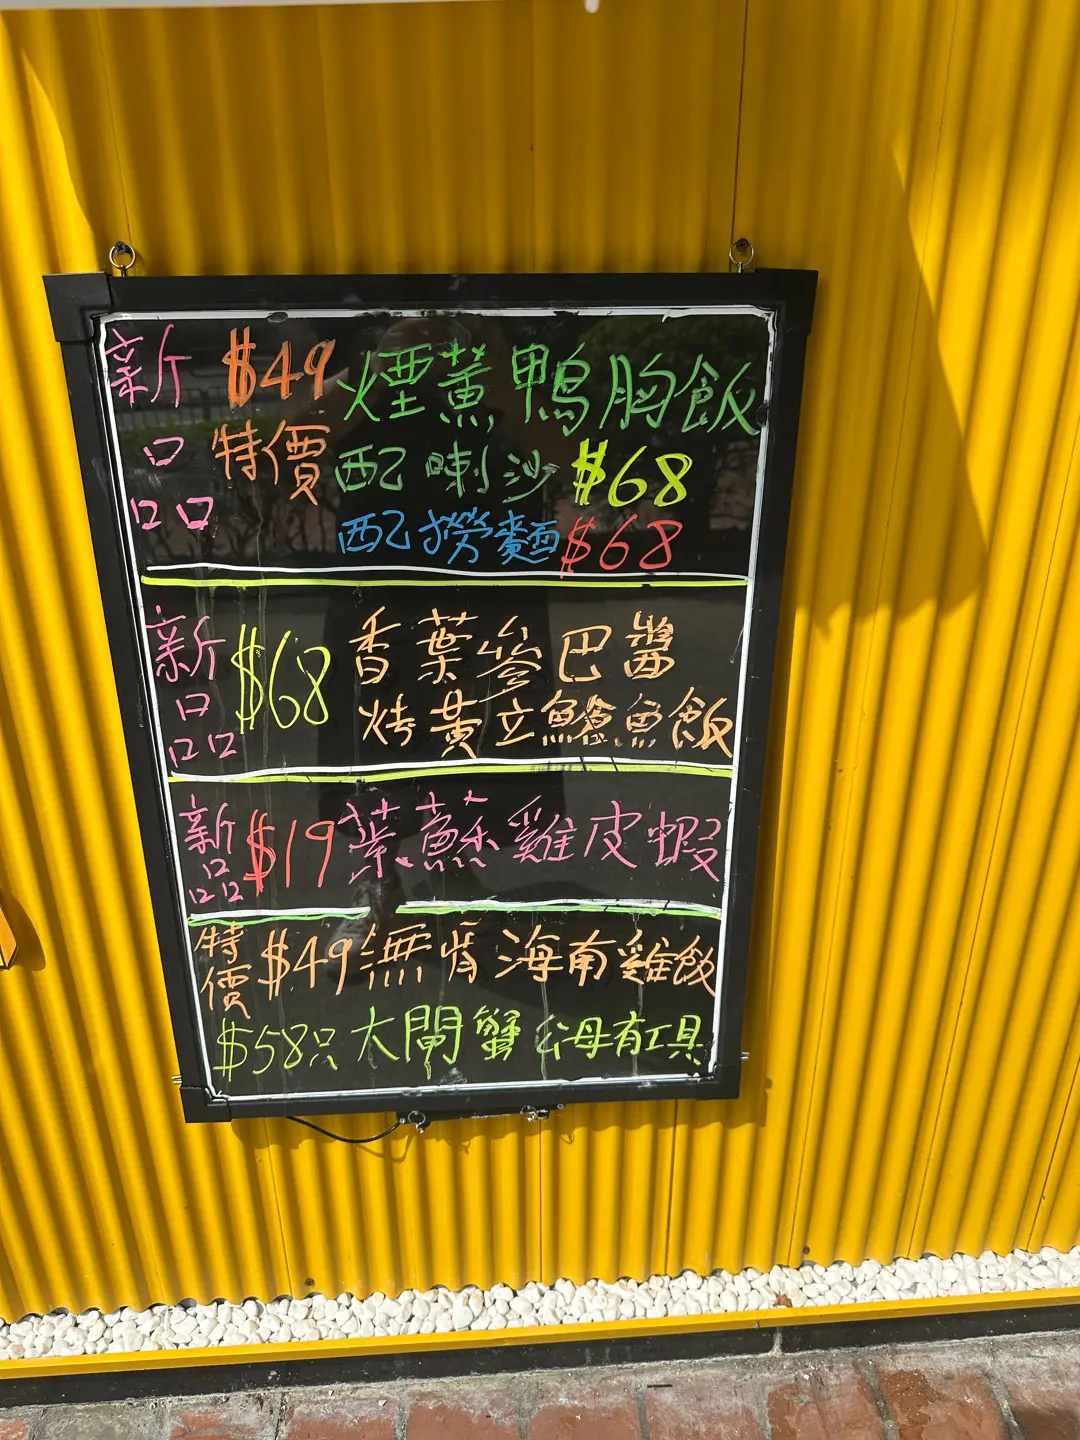 新品 $49 煙薰鴨胸飯
特價 配喇沙 $68
配撈麵 $68
新品 $68 香葉參巴醬
烤黃立鯧魚飯
新品 $19 紫蘇雞皮蝦
特價 $49 無骨海南雞飯
$58只 大閘蟹 公母有工具